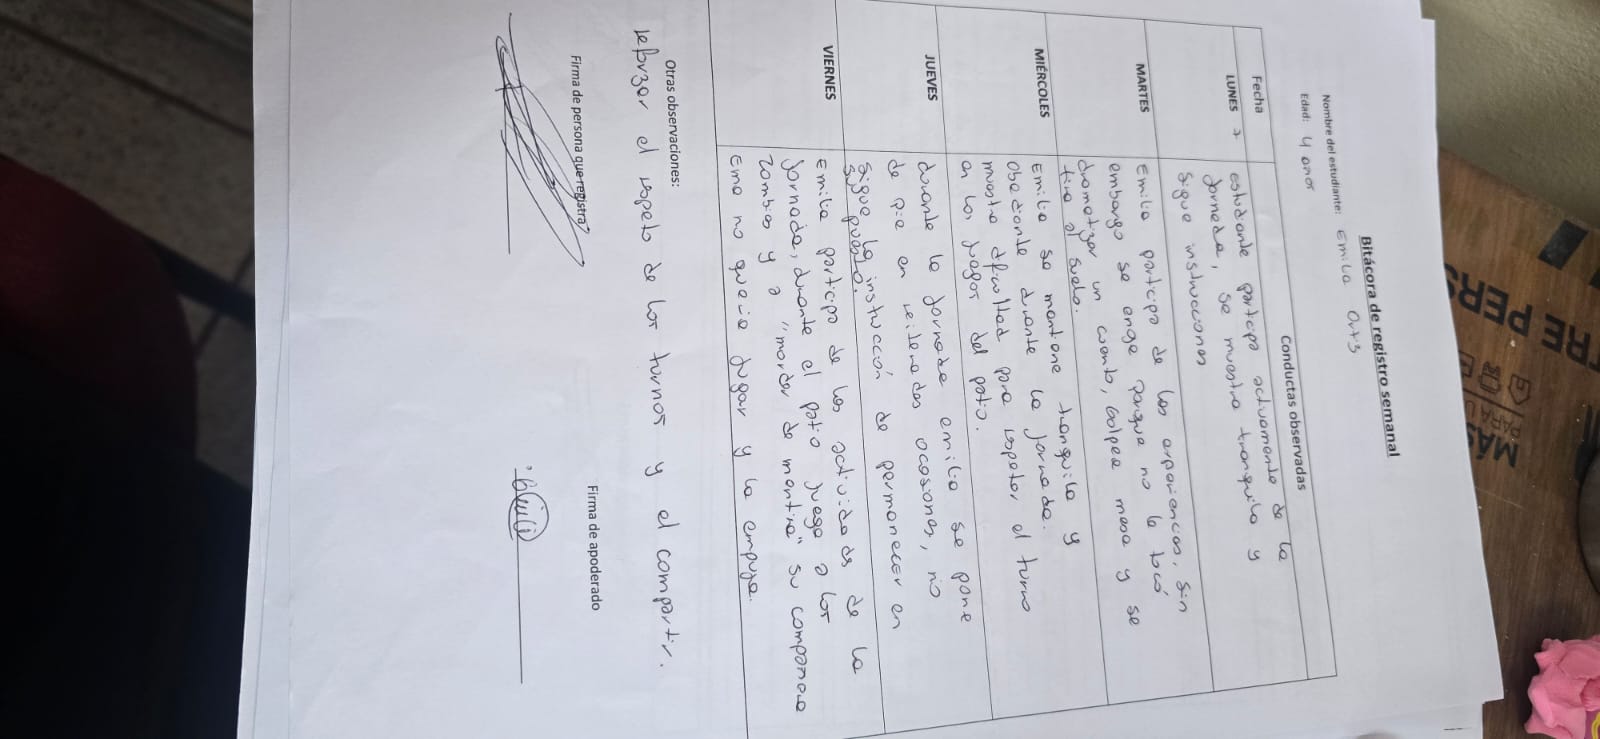 Bitácora de registro semanal
Nombre del estudiante: Emilia Ortiz
Edad: 4 años
Fecha
Conductas observadas
LUNES 7
estudiante participa activamente de la
jornada, se muestra tranquila y
sigue instrucciones
MARTES
Emilia participa de las experiencias, sin
embargo se enoja porque no le tocó
dramatizar un cuento, golpea mesa y se
tira al suelo.
MIÉRCOLES
Emilia se mantiene tranquila y
obediente durante la jornada.
muestra dificultad para respetar el turno
en los juegos del patio.
JUEVES
durante la jornada emilia se pone
de pie en reiteradas ocasiones, no
sigue la instrucción de permanecer en
su puesto.
VIERNES
Emilia participa de las actividades de la
jornada, durante el patio juega a los
zombies y a "morder de mentira" su compañera
Ema no quería jugar y la empuja.
Otras observaciones:
reforzar el respeto de los turnos y el compartir.
Firma de persona que registra
Firma de apoderado
TRE PERS
MÁS
PARA U